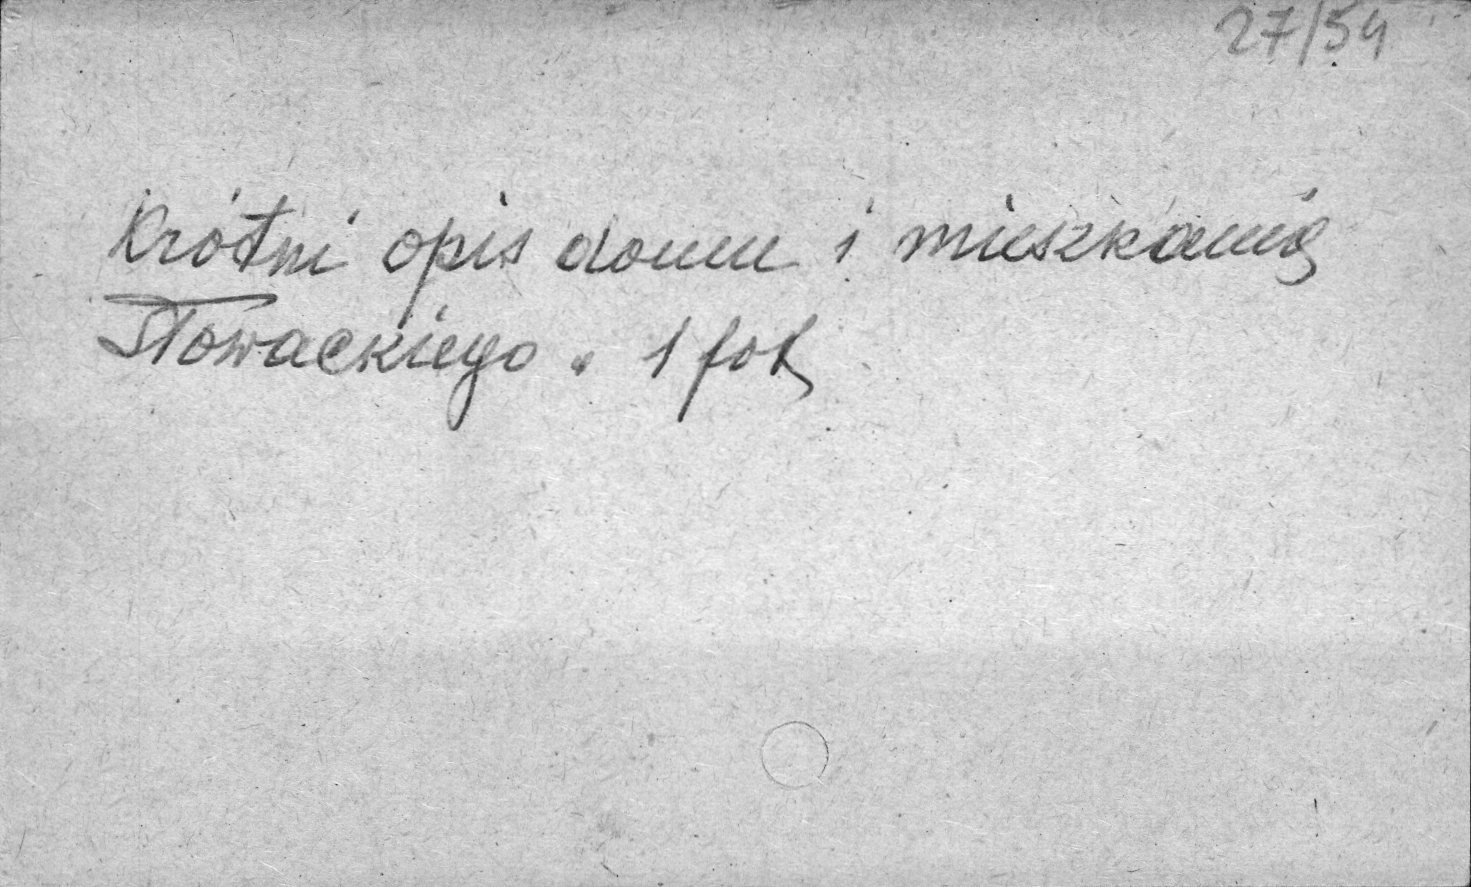 27/54
Krótki opis domu i mieszkania
Słowackiego. 1 fot